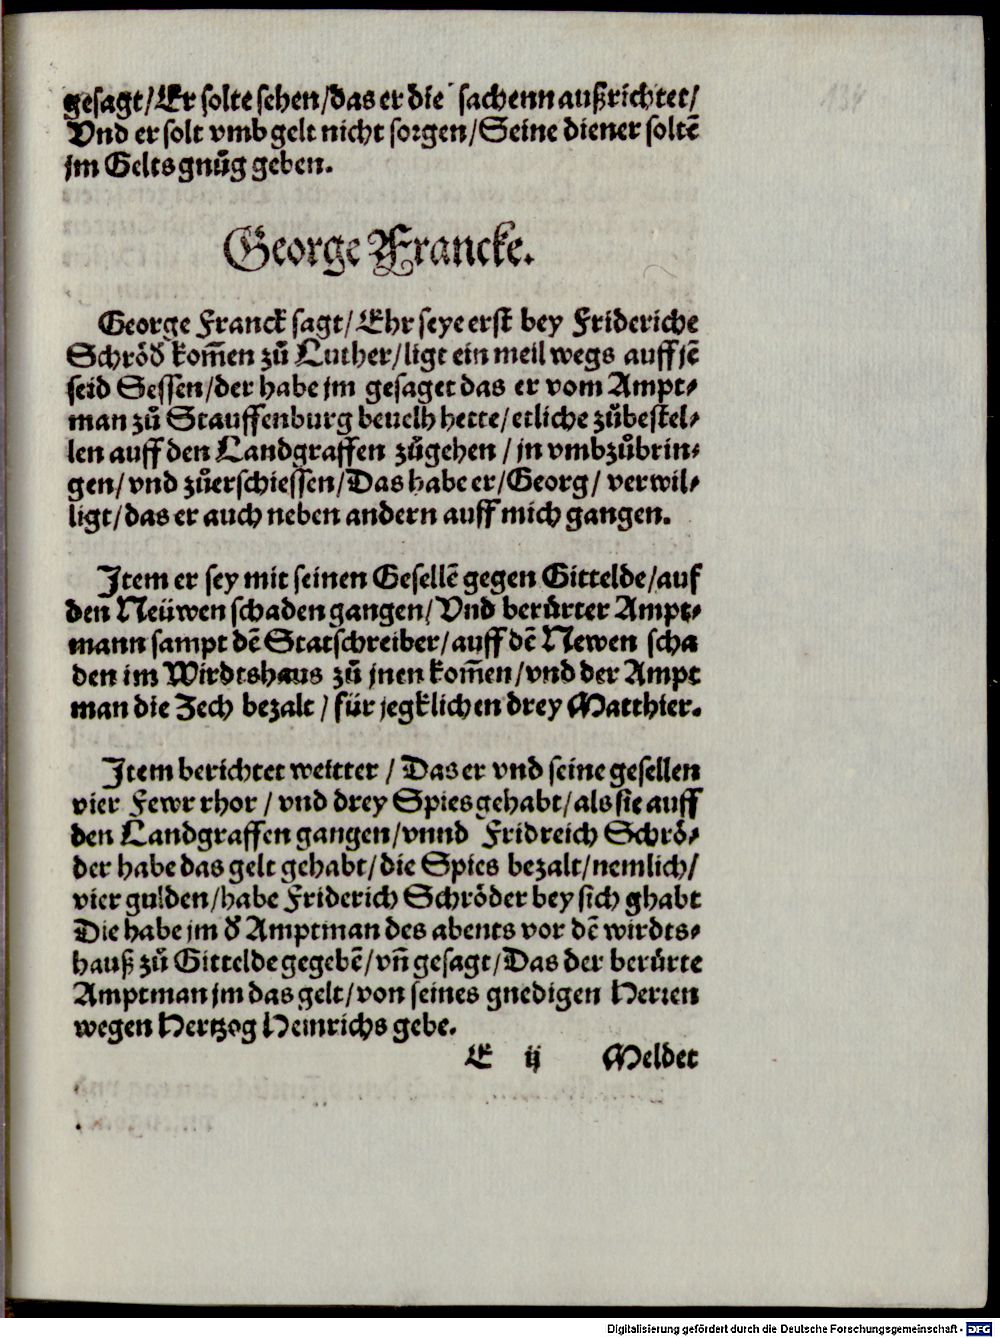 134
gesagt/Er solte sehen/das er die sachenn außrichtet/
Vnd er solt vmb gelt nicht sorgen/Seine diener soltẽ
jm Gelts gnůg geben.
George Francke.
George Franck sagt/Ehr seye erst bey Frideriche
Schrőd̕ kom̃en zů Luther/ligt ein meil wegs auff jẽ
seid Sessen/der habe jm gesaget das er vom Ampt⸗
man zů Stauffenburg beuelh hette/etliche zůbestel⸗
len auff den Landgraffen zůgehen / jn vmbzůbrin⸗
gen/vnd zůerschiessen/Das habe er/Georg/ verwil⸗
ligt/das er auch neben andern auff mich gangen.
Jtem er sey mit seinen Gesellẽ gegen Gittelde/auf
den Neüwen schaden gangen/Vnd berůrter Ampt⸗
mann sampt dẽ Statschreiber/auff dẽ Newen scha
den im Wirdtshaus zů jnen kom̃en/vnd der Ampt
man die Zech bezalt / für jegklichen drey Matthier.
Jtem berichtet weitter / Das er vnd seine gesellen
vier Fewr rhor / vnd drey Spies gehabt/als sie auff
den Landgraffen gangen/vnnd Fridreich Schrő⸗
der habe das gelt gehabt/die Spies bezalt/nemlich/
vier gulden/habe Friderich Schrőder bey sich ghabt
Die habe jm d̕ Amptman des abents vor dẽ wirdts⸗
hauß zů Gittelde gegebẽ/vñ gesagt/Das der berůrte
Amptman jm das gelt/von seines gnedigen Herren
wegen Hertzog Heinrichs gebe.
E ij Meldet
Digitalisierung gefördert durch die Deutsche Forschungsgemeinschaft - DFG